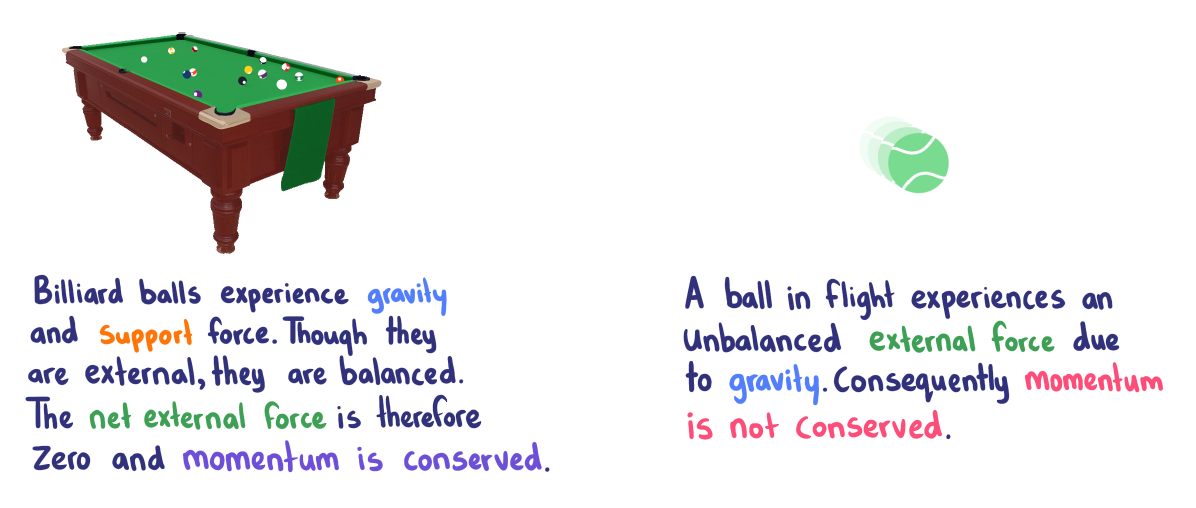 Billiard balls experience gravity
and support force. Though they
are external, they are balanced.
The net external force is therefore
Zero and momentum is conserved.
A ball in flight experiences an
Unbalanced external force due
to gravity. Consequently momentum
is not conserved.